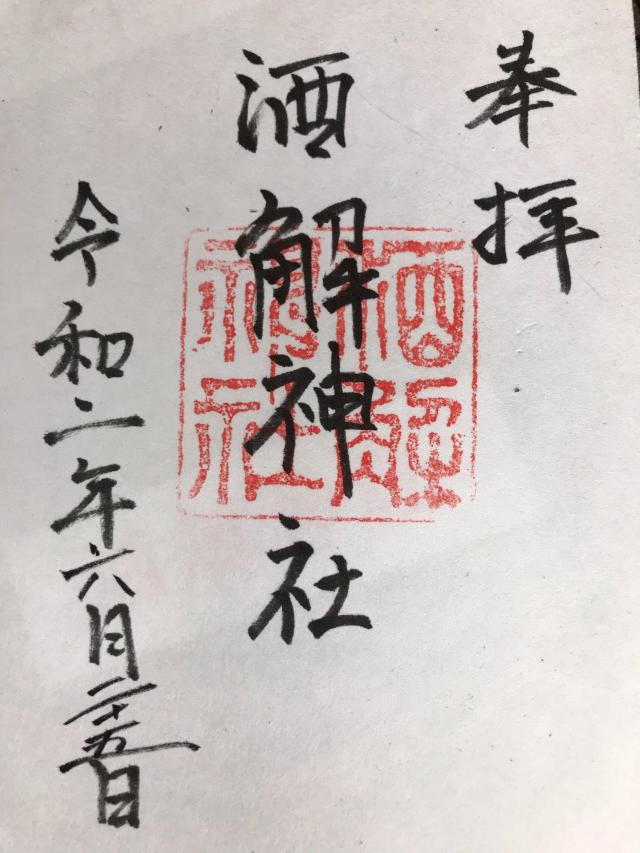 奉拝
酒解神社
酒解神社
令和二年六月二十五日